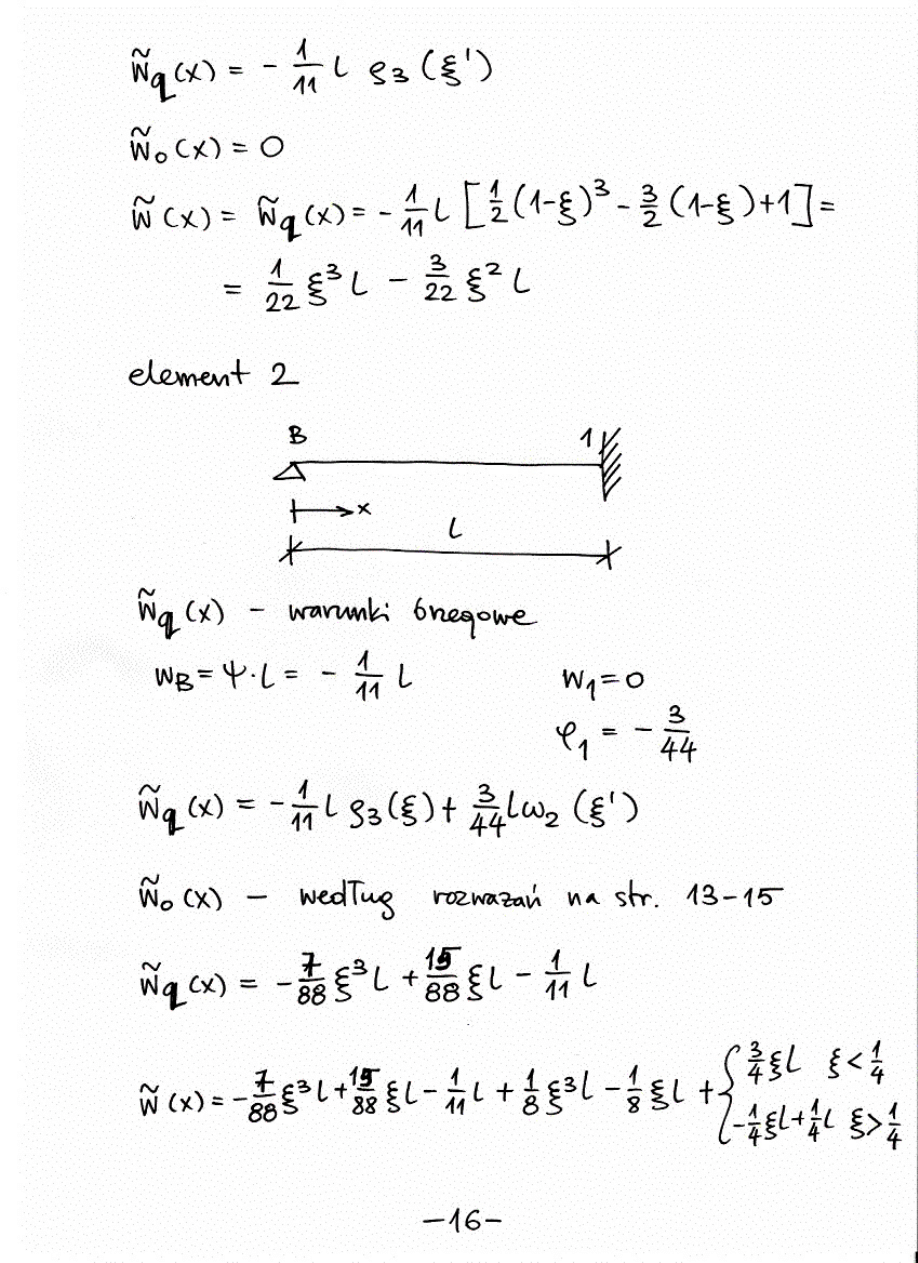 w̃q(x) = - 1/11 l ρ3(ξ')
w̃o(x) = 0
w̃(x) = w̃q(x) = - 1/11 l [1/2(1-ξ)³ - 3/2(1-ξ)+1] =
= 1/22 ξ³l - 3/22 ξ²l
element 2
B 1
x
l
w̃q(x) - warunki brzegowe
wB = ψ·l = - 1/11 l w1 = 0
φ1 = - 3/44
w̃q(x) = - 1/11 l ρ3(ξ) + 3/44 l ω2(ξ')
w̃o(x) - według rozważań na str. 13-15
w̃q(x) = - 7/88 ξ³l + 15/88 ξl - 1/11 l
w̃(x) = - 7/88 ξ³l + 15/88 ξl - 1/11 l + 1/8 ξ³l - 1/8 ξl + { 3/4 ξl ξ < 1/4
-1/4 ξl + 1/4 l ξ > 1/4
-16-